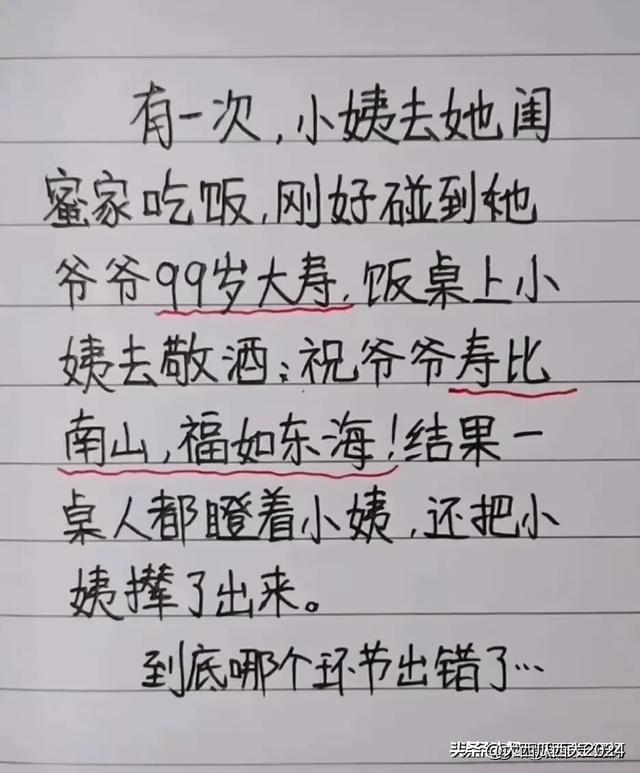 有一次，小姨去她闺
蜜家吃饭，刚好碰到她
爷爷99岁大寿，饭桌上小
姨去敬酒：祝爷爷寿比
南山，福如东海！结果一
桌人都瞪着小姨，还把小
姨撵了出来。
到底哪个环节出错了…
头条
2024